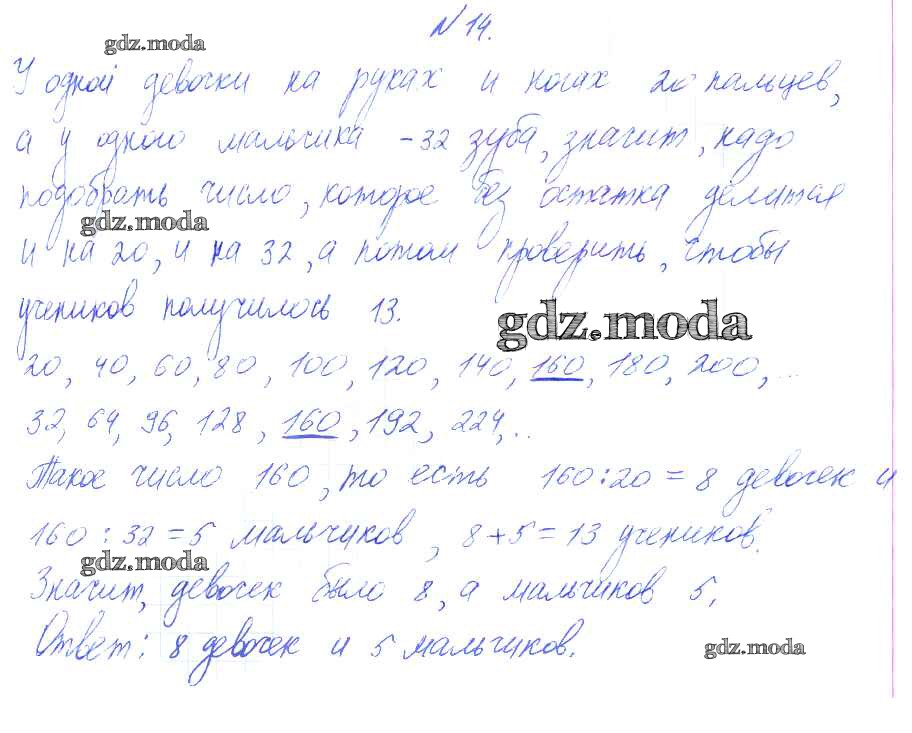 № 14.
gdz.moda
У одной девочки на руках и ногах 20 пальцев,
а у одного мальчика - 32 зуба, значит, надо
подобрать число, которое без остатка делится
gdz.moda
и на 20, и на 32, а потом проверить, чтобы
учеников получилось 13.
gdz.moda
20, 40, 60, 80, 100, 120, 140, 160, 180, 200, ...
32, 64, 96, 128, 160, 192, 224, ...
Такое число 160, то есть 160 : 20 = 8 девочек и
160 : 32 = 5 мальчиков, 8 + 5 = 13 учеников.
gdz.moda
Значит, девочек было 8, а мальчиков 5,
Ответ: 8 девочек и 5 мальчиков.
gdz.moda